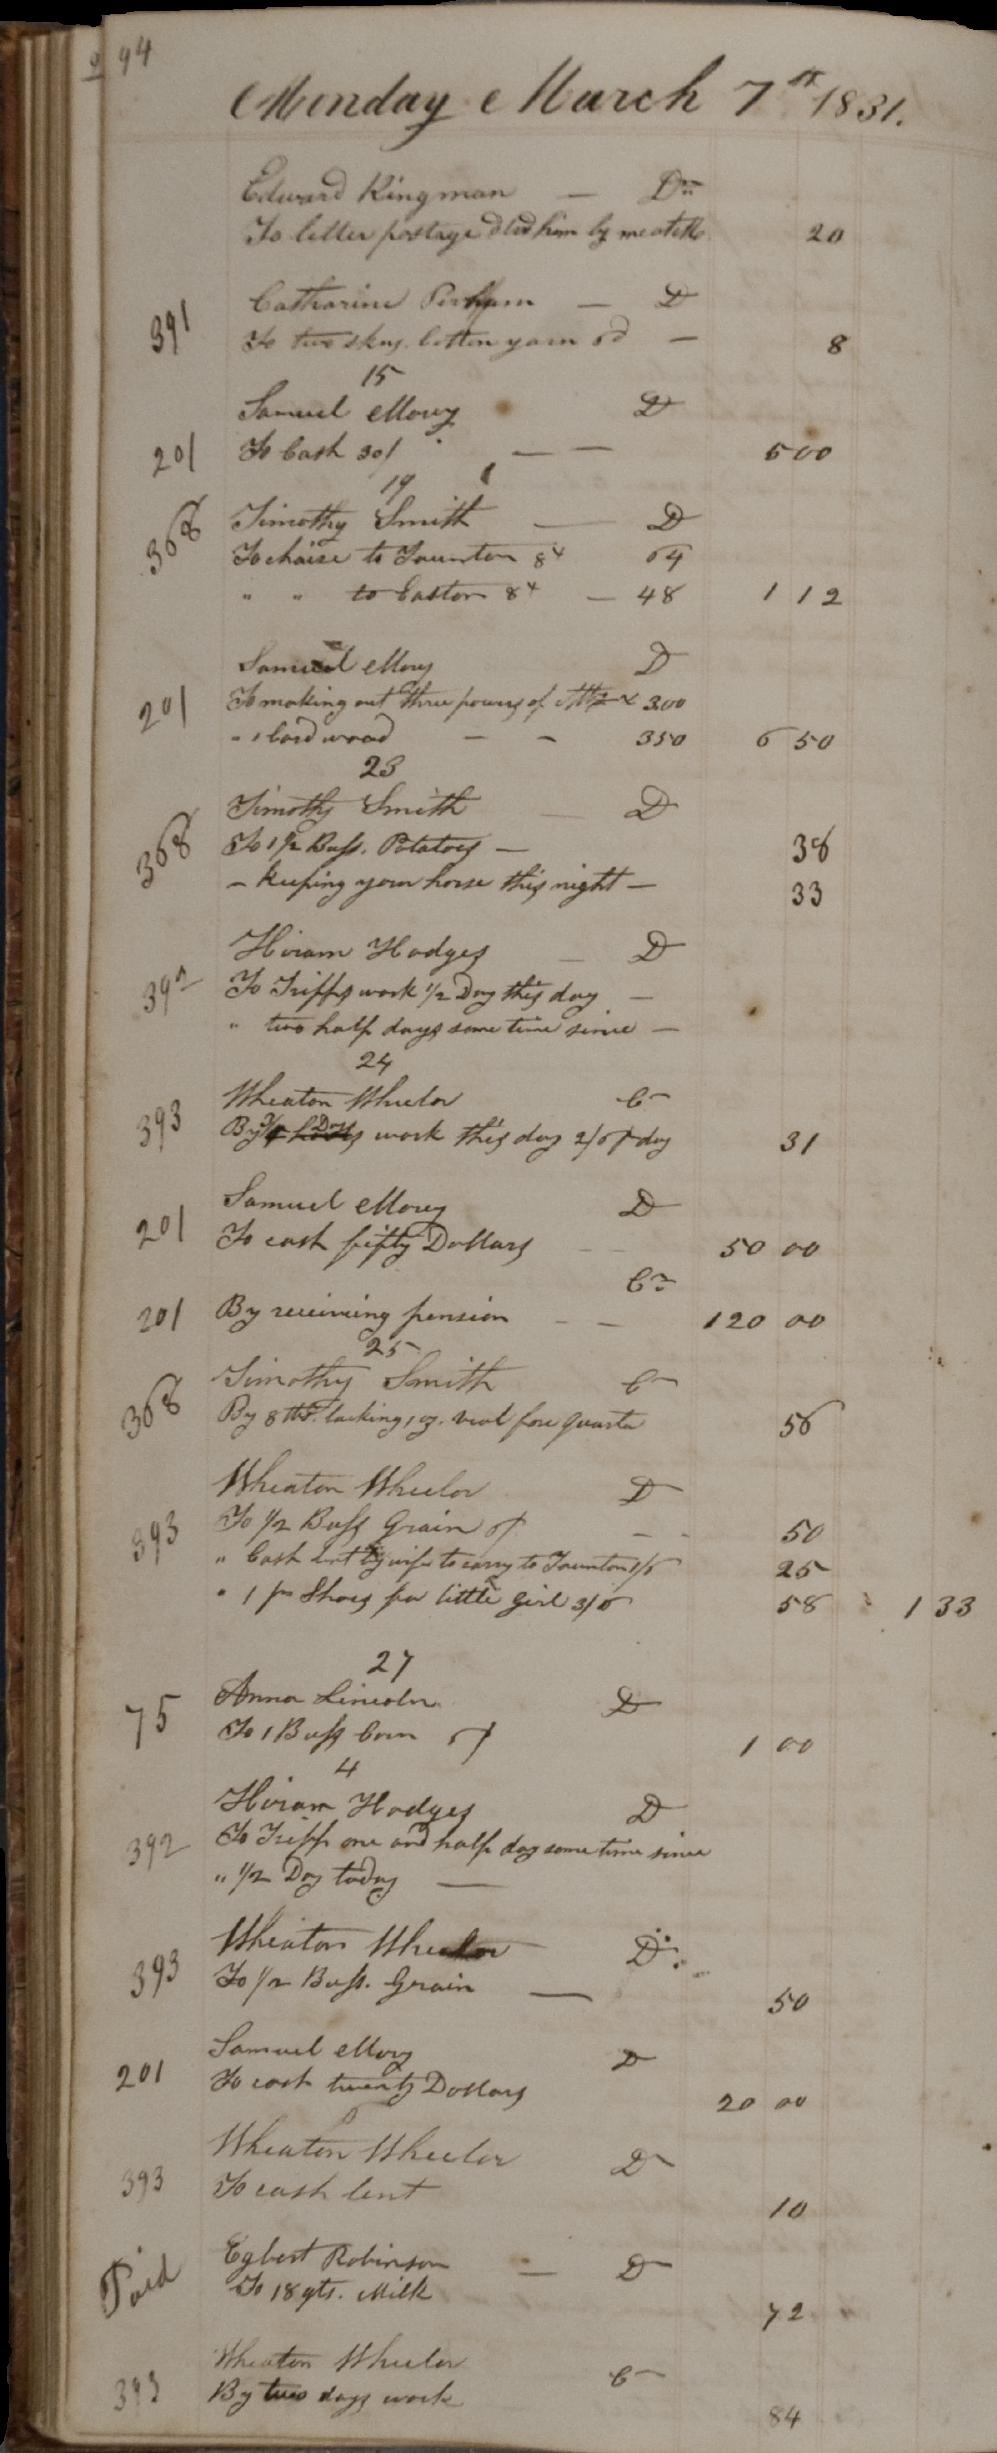 94
Monday March 7th 1831.
Edward Kingman — Dr
To letter postage dld him by me 20
391 Catharine Perham — D
To two skns. Cotton yarn 6d — 8
15
Samuel Mory D
201 To Cash 30/ — — 5 00
19
368 Timothy Smith — D
To chaise to Taunton 8 64
" " to Easton 8 — 48 1 12
Samuel Mory D
201 To making out three powers of 3.00
" 1 Cord wood — — 350 6 50
23
Timothy Smith — D
368 To 1 1/2 Buss. Potatoes — 38
— Keeping your horse this night — 33
Hiram Hodges — D
392 To Tripps work 1/2 Day this day —
" two half days some time since —
24
Wheaton Wheelor C
393 By 3/4 Days work this day 2/6 P day 31
Samuel Mory D
201 To cash fifty Dollars — — 50 00
Cr
201 By receiving pension — — 120 00
25
Timothy Smith C
368 By 8 lbs. lacking 1 oz. veal fore quarter 56
Wheaton Wheelor D
393 To 1/2 Buss Grain 6/ — - 50
" Cash lent by wife to carry to Taunton 1/6 25
" 1 pr Shoes for little girl 3/6 58 1 33
27
75 Anna Lincoln D
To 1 Buss Corn 6/ 1 00
4
Hiram Hodges D
392 To Tripp one and half day some time since
" 1/2 Day today —
Wheaton Wheelor Dr
393 To 1/2 Buss. Grain — 50
Samuel Mory D
201 To cash twenty Dollars 20 00
Wheaton Wheelor D
393 To cash lent 10
Paid Egbert Robinson — D
To 18 qts. Milk 72
Wheaton Wheelor C
393 By two days work 84